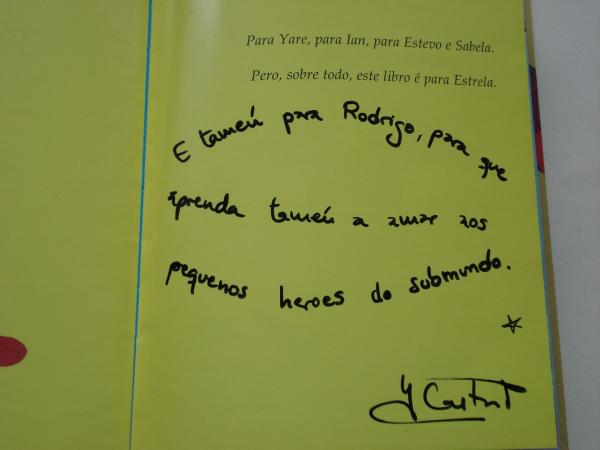 Para Yare, para Ian, para Estevo e Sabela.
Pero, sobre todo, este libro é para Estrela.
E tamén para Rodrigo, para que
aprenda tamén a amar aos
pequenos heroes do submundo.